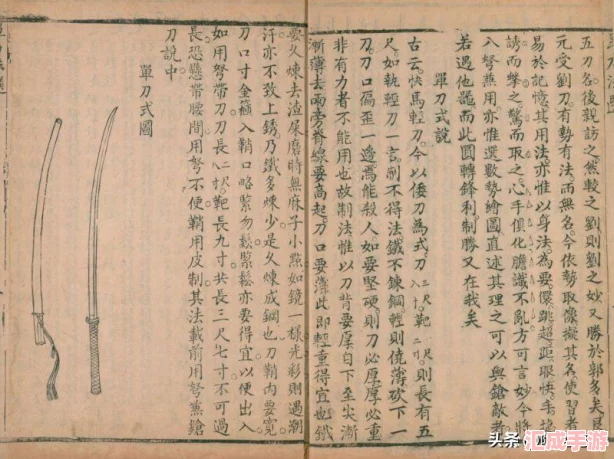 五刀名後親訪之然較之劉則劉之妙又勝於郭多矣
元受劉刀有勢有法而無名今依勢取像擬其名使習者
易於記憶其用法亦惟以身法為要儇跳超距眼快手
誘而擊之驚而取之心手俱化膽識不亂方可言妙今將
入弩兼用亦惟選數勢繪圖直述其理之可以與鎗敵者
若遇他噐而此圜轉鋒利制勝又在我矣
單刀式說
古云快馬輕刀今以倭刀為式刀三尺八寸靶一尺二寸則長有五
尺如執輕刀一言制不得法鐵不鍊鋼輕則僥薄砍下一
刀刀口偏歪一邊焉能殺人如要堅硬則刀必厚厚必重
非有力者不能用也故制法惟以刀背要厚自下至尖漸
漸薄去兩旁脊線要高起刀口要薄此即輕重得宜也鐵
要久煉去渣屎磨時無麻子小點如鏡一樣光彩則遇潮
汗亦不致上銹乃鐵多煉少是久煉成鋼也刀鞘內要寬
刀口寸金箍入鞘口略緊勿鬆緊鬆亦要得宜以便出入
如用弩帶刀刀長二尺八寸靶長九寸共長三尺七寸不可過
長恐懸帶腰間用弩不便鞘用皮制其法載前用弩兼鎗
刀說中
單刀式圖
头条
汇成手游